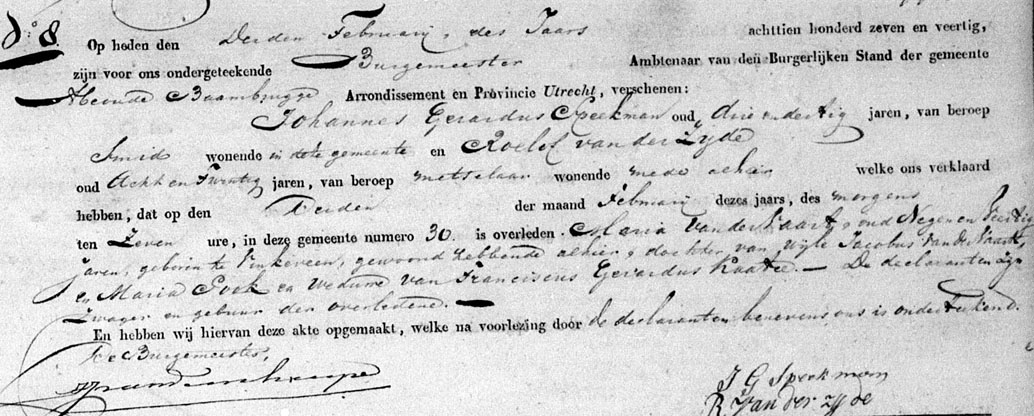 No: 8
Op heden den Derden Februarij, des Jaars achttien honderd zeven en veertig,
zijn voor ons ondergeteekende Burgemeester Ambtenaar van den Burgerlijken Stand der gemeente
Abcoude Baambrugge Arrondissement en Provincie Utrecht, verschenen:
Johannes Gerardus Speekman oud drie en dertig jaren, van beroep
Smid wonende in deze gemeente en Roelof van der Zijde
oud Acht en Twintig jaren, van beroep metselaar wonende mede alhier welke ons verklaard
hebben, dat op den Derden der maand Februarij dezes jaars, des morgens
ten Zeven ure, in deze gemeente numero 30. is overleden: Maria van der Vaart, oud Negen en Veertig
jaren, geboren te Vinkeveen, gewoond hebbende alhier, dochter van wijle Jacobus van der Vaart
en Maria Pook en weduwe van Franciscus Gerardus Raatée. — De declaranten zijn
Zwager en gebuur der overledene. —
En hebben wij hiervan deze akte opgemaakt, welke na voorlezing door de declaranten benevens ons is onderteekend.
De Burgemeester,
J G Speekman
R Van der zijde